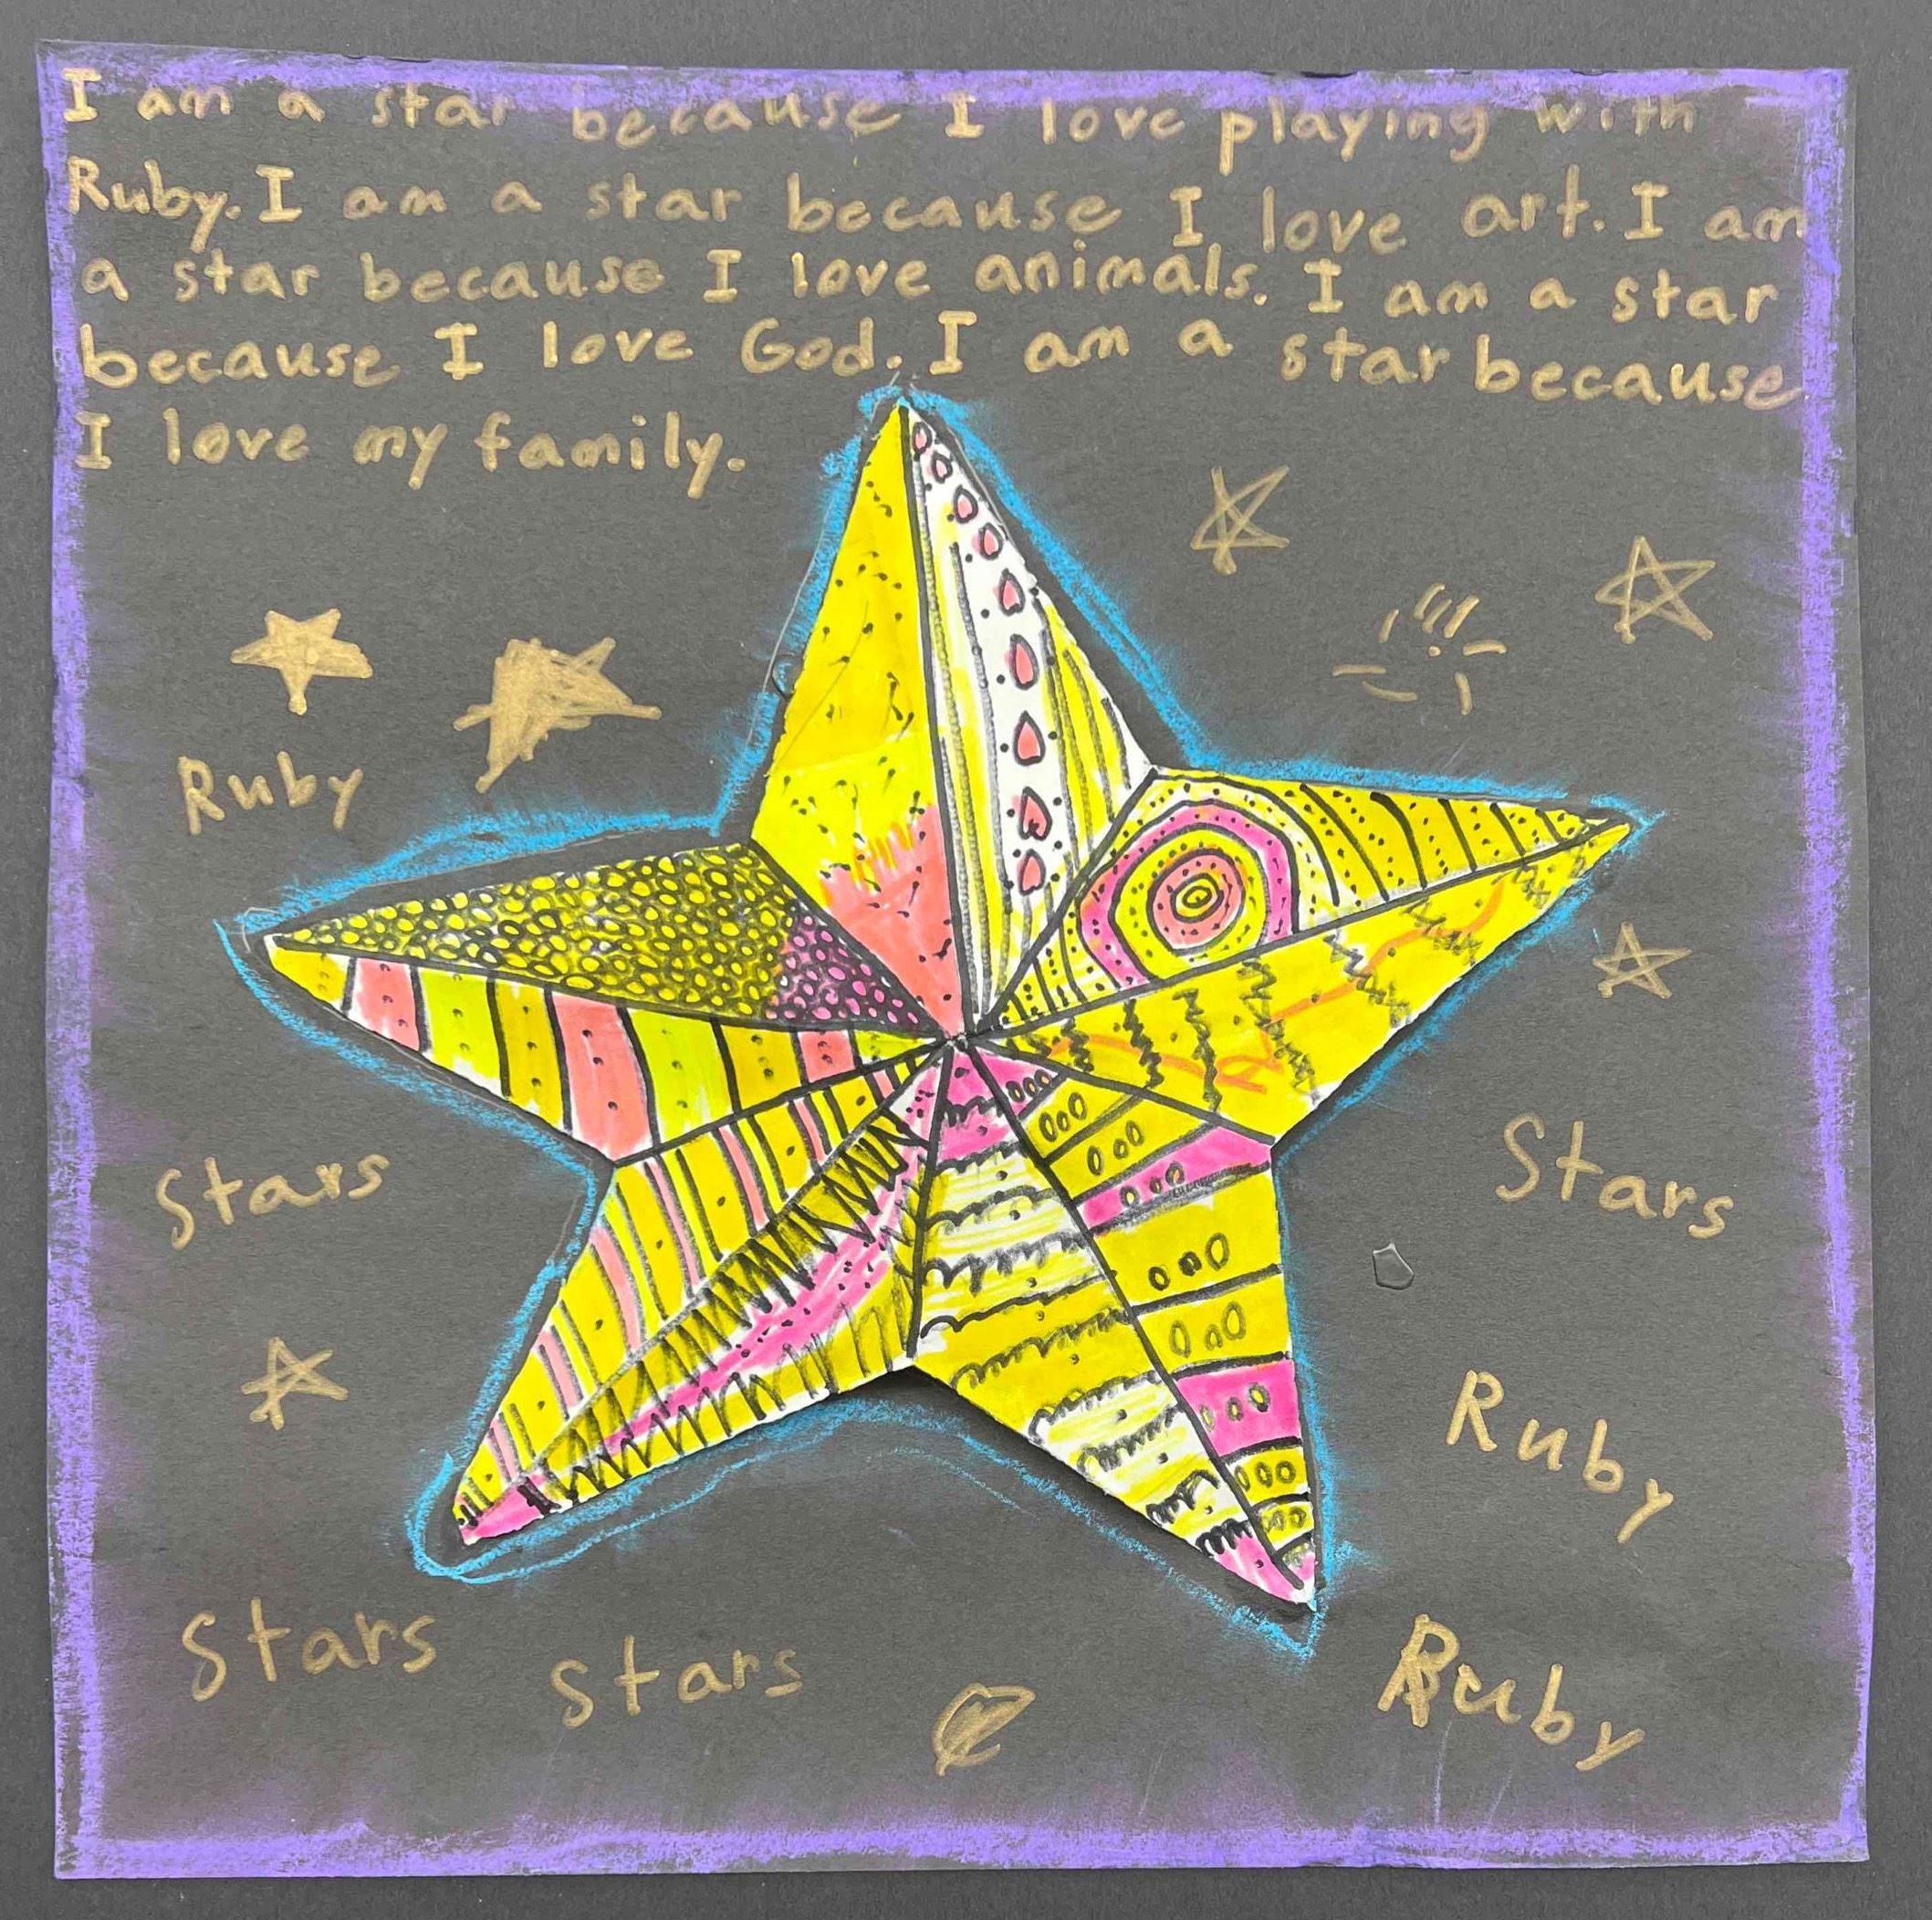 I am a star because I love playing with
Ruby. I am a star because I love art. I am
a star because I love animals. I am a star
because I love God. I am a star because
I love my family.
Ruby
Stars
Stars
Ruby
Stars
Stars
Ruby